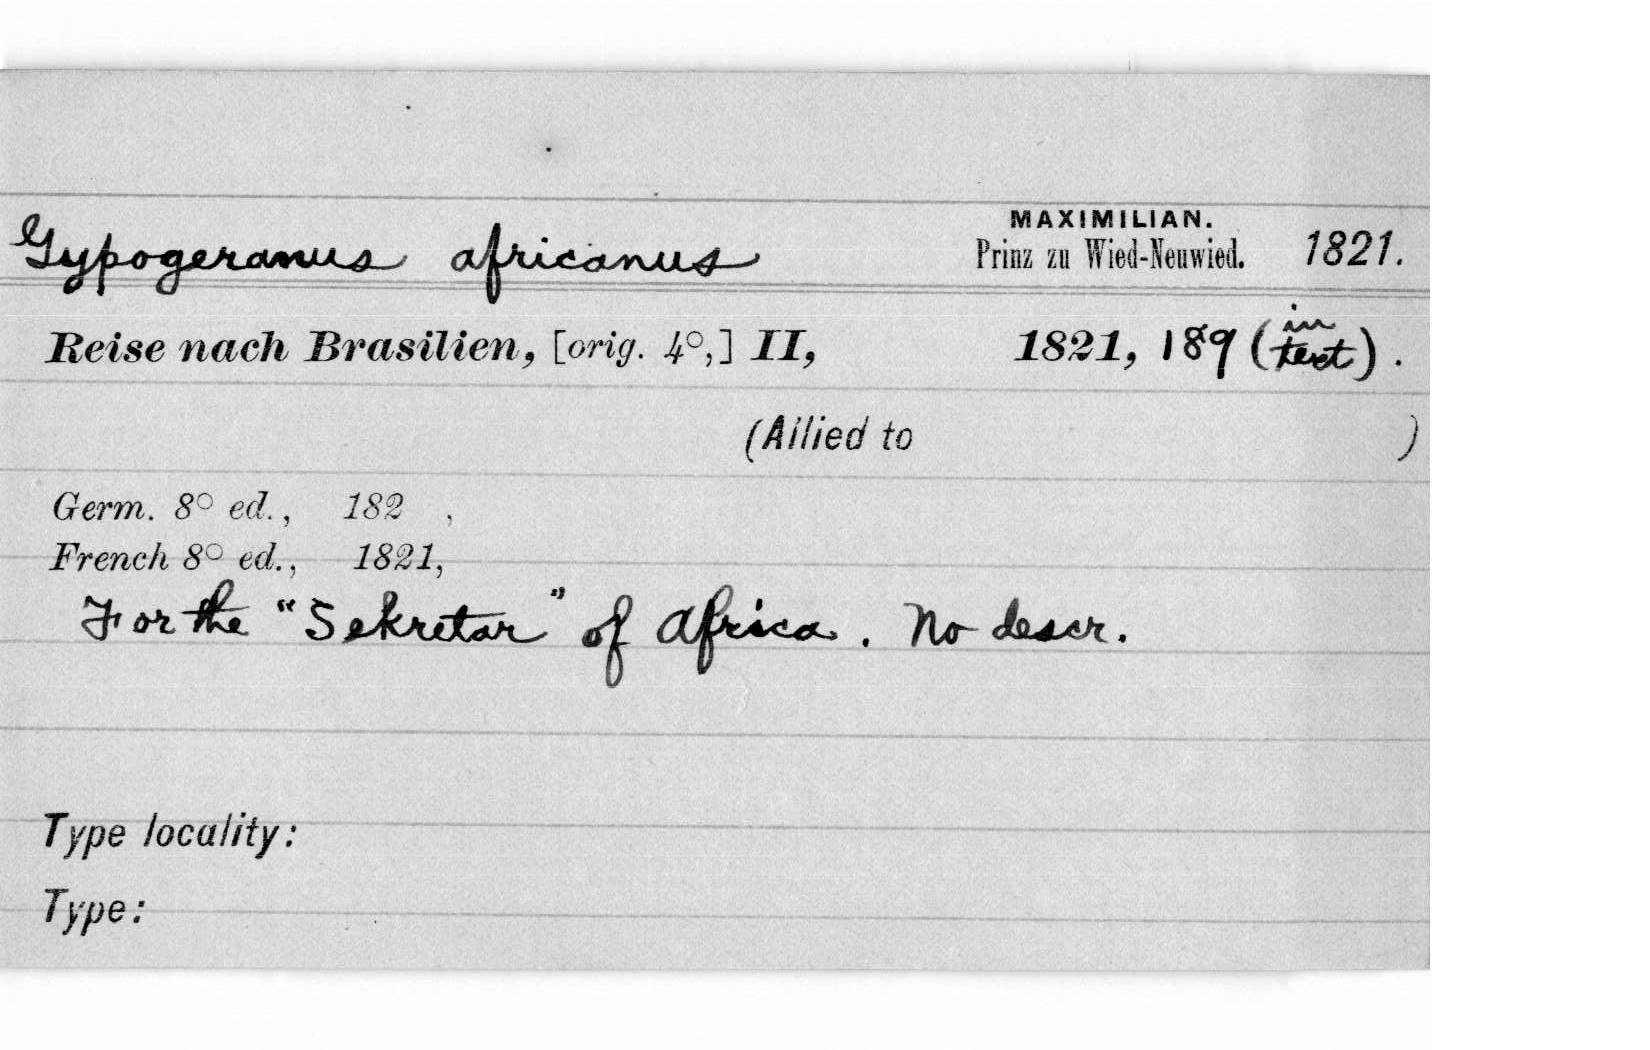 Gypogeranus africanus MAXIMILIAN. Prinz zu Wied-Neuwied. 1821.
Reise nach Brasilien, [orig. 4°,] II, 1821, 189 (in text).
(Allied to )
Germ. 8° ed., 182 ,
French 8° ed., 1821,
For the "Sekretar" of Africa. No descr.
Type locality:
Type: